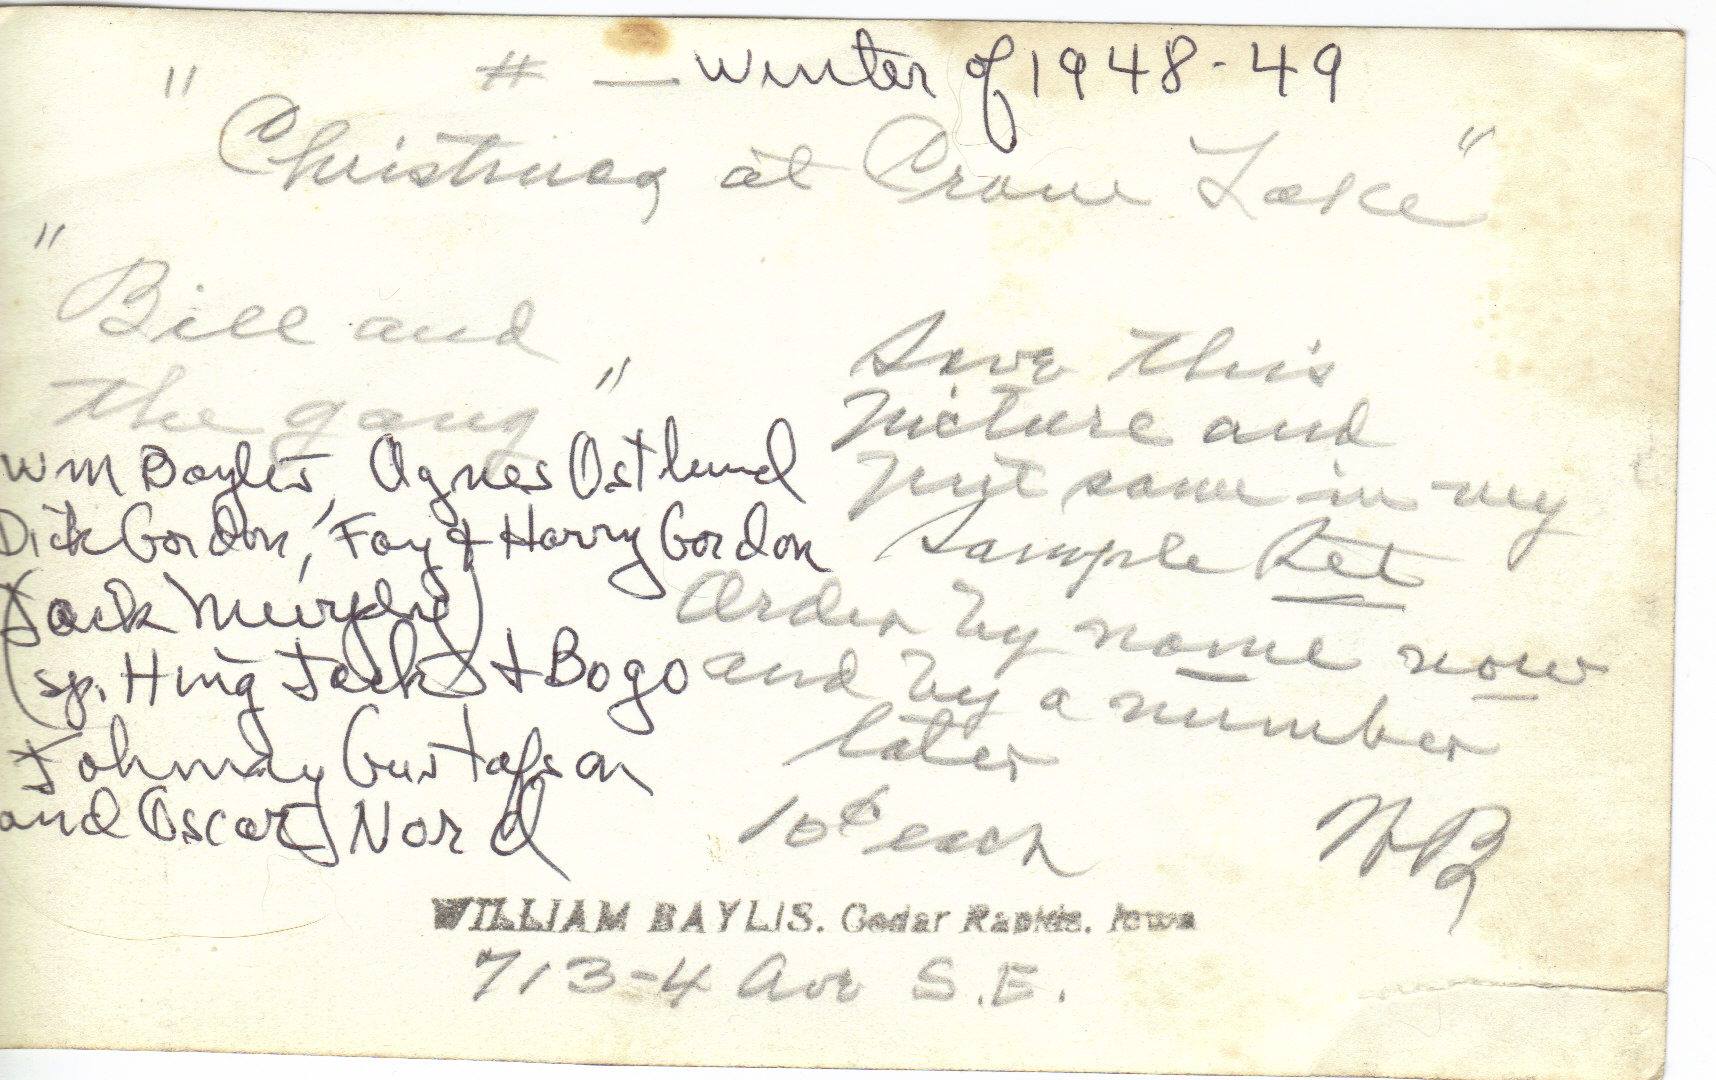 # — Winter of 1948-49
"Christmas at Crane Lake"
"Bill and
the gang"
Wm Baylis, Agnes Ostlund
Dick Gordon, Fay & Harry Gordon
(Jack Murphy)
(sp. Hing Jack & Bogo
Johnny Gustafson
and Oscar Nord
Save this
picture and
put same in my
sample Set
Order by name now
and by a number
later
10¢ each WB
WILLIAM BAYLIS. Cedar Rapids. Iowa
713-4 Ave S.E.